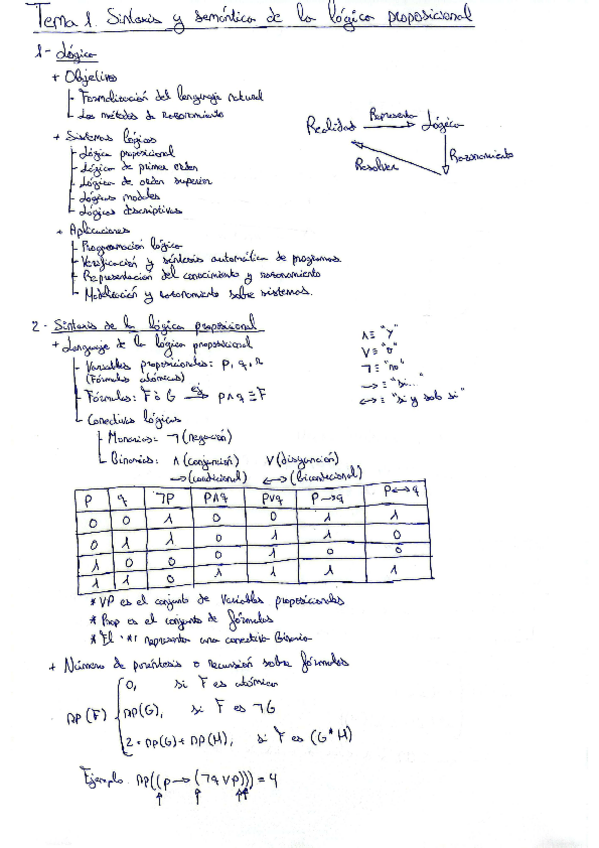 Tema 1. Sintaxis y semántica de la lógica proposicional
1- Lógica
+ Objetivos
- Formalización del lenguaje natural
- Los métodos de razonamiento
+ Sistemas lógicos
- Lógica proposicional
- Lógica de primer orden
- Lógica de orden superior
- Lógicas modales
- Lógicas descriptivas
Realidad Representa Lógica
Resolver
Razonamiento
+ Aplicaciones
- Programación lógica
- Verificación y síntesis automática de programas
- Representación del conocimiento y razonamiento
- Modelización y razonamiento sobre sistemas.
2- Sintaxis de la lógica proposicional
+ Lenguaje de la lógica proposicional
- Variables proposicionales: p, q, r
(Fórmulas atómicas)
- Fórmulas: F ò G → p∧q ≡ F
- Conectivas lógicas
- Monarias: ¬ (negación)
- Binarias: ∧ (conjunción) ∨ (disyunción)
→ (condicional) ↔ (bicondicional)
∧ ≡ "y"
∨ ≡ "o"
¬ ≡ "no"
→ ≡ "si..."
↔ ≡ "si y solo si"
p q ¬p p∧q p∨q p→q p↔q
0 0 1 0 0 1 1
0 1 1 0 1 1 0
1 0 0 0 1 0 0
1 1 0 1 1 1 1
* VP es el conjunto de variables proposicionales
* Prop es el conjunto de fórmulas
* El '*' representa una conectiva binaria
+ Número de paréntesis o recursión sobre fórmulas
np(F) { 0, si F es atómica
np(G), si F es ¬G
2 + np(G) + np(H), si F es (G * H)
Ejemplo np((p → (¬q ∨ p))) = 4